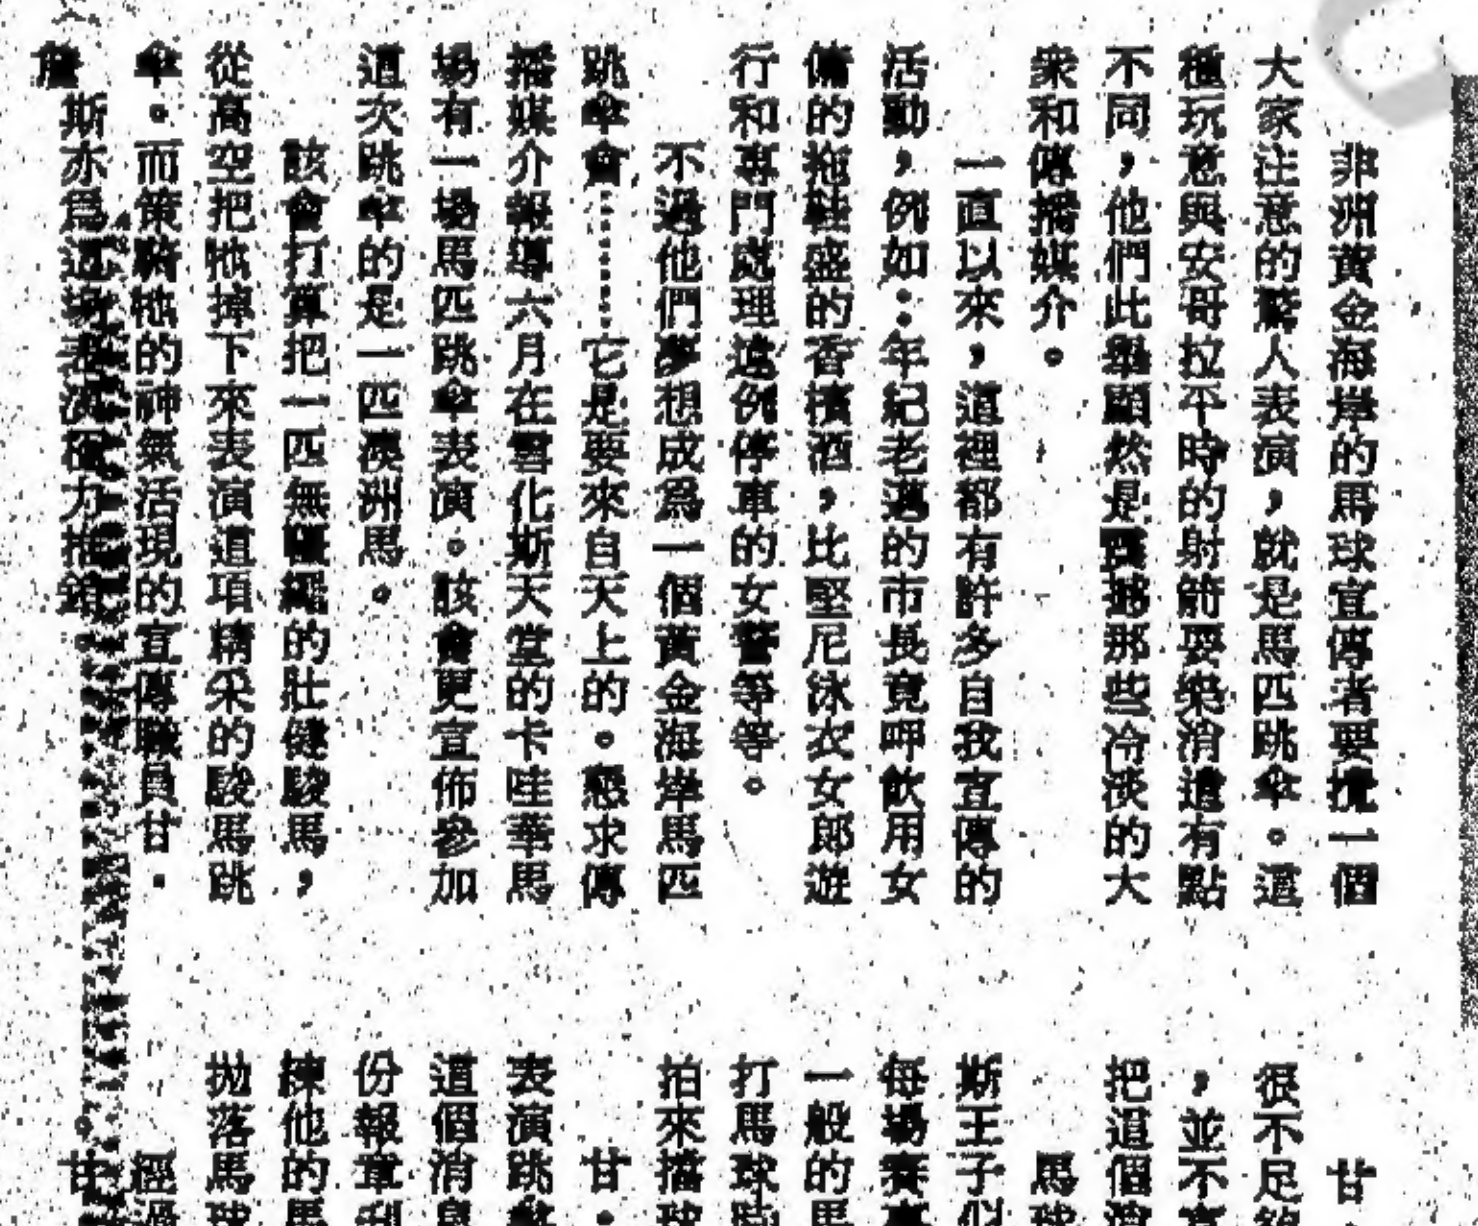 非洲黃金海岸的馬球宣傳者要攪一個
大家注意的驚人表演，就是馬匹跳傘。這
種玩意與安哥拉平時的射箭耍樂消遣有點
不同，他們此舉顯然是那些冷淡的大
衆和傳播媒介。
一直以來，這裡都有許多自我宣傳的
活動，例如：年紀老邁的市長竟呷飲用女
傭的拖鞋盛的香檳酒，比堅尼泳衣女郎遊
行和專門處理違例停車的女警等等。
不過他們夢想成爲一個黃金海岸馬匹
跳傘會……它是要來自天上的。懇求傳
播媒介報導六月在雲化斯天堂的卡哇華馬
場有一場馬匹跳傘表演。該會更宣佈參加
這次跳傘的是一匹澳洲馬。
該會打算把一匹無韁繩的壯健駿馬，
從高空把牠掉下來表演這項精采的駿馬跳
傘。而策騎牠的神氣活現的宣傳職員甘·
詹斯亦爲這場表演極力推銷
甘
很不足
，並不
把這個
馬球
斯王子似
每場賽
一般的馬
打馬球
拍來擋球
甘·
表演跳傘
這個消息
份報章
揀他的馬
拋落馬球
經過
。甘